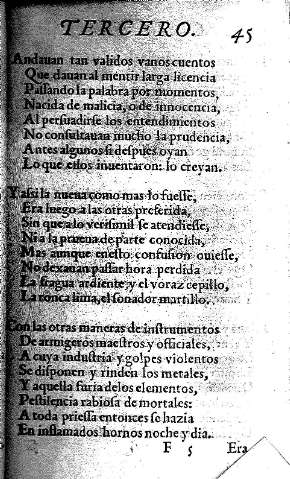 TERCERO. 45
Andauan tan validos vanos cuentos
Que dauan al mentir larga licencia
Passando la palabra por momentos,
Nacida de malicia, o de innocencia,
Al persuadirse los entendimientos
No consultauan mucho la prudencia,
Antes algunos si despues oyan
Lo que ellos inuentaron: lo creyan.
Y assi la nueua como mas lo fuesse,
Era luego a las otras preferida,
Sin que a lo verisimil se atendiesse,
Ni a la prueua de parte conocida,
Mas aunque enesto confusion ouiesse,
No dexauan passar hora perdida
La fragua ardiente y el voraz cepillo,
La ronca lima, el sonador martillo.
Con las otras maneras de instrumentos
De armigeros maestros y officiales,
A cuya industria y golpes violentos
Se disponen y rinden los metales,
Y aquella furia delos elementos,
Pestilencia rabiosa de mortales:
A toda priessa entonces se hazia
En inflamados hornos noche y dia.
F 5 Era